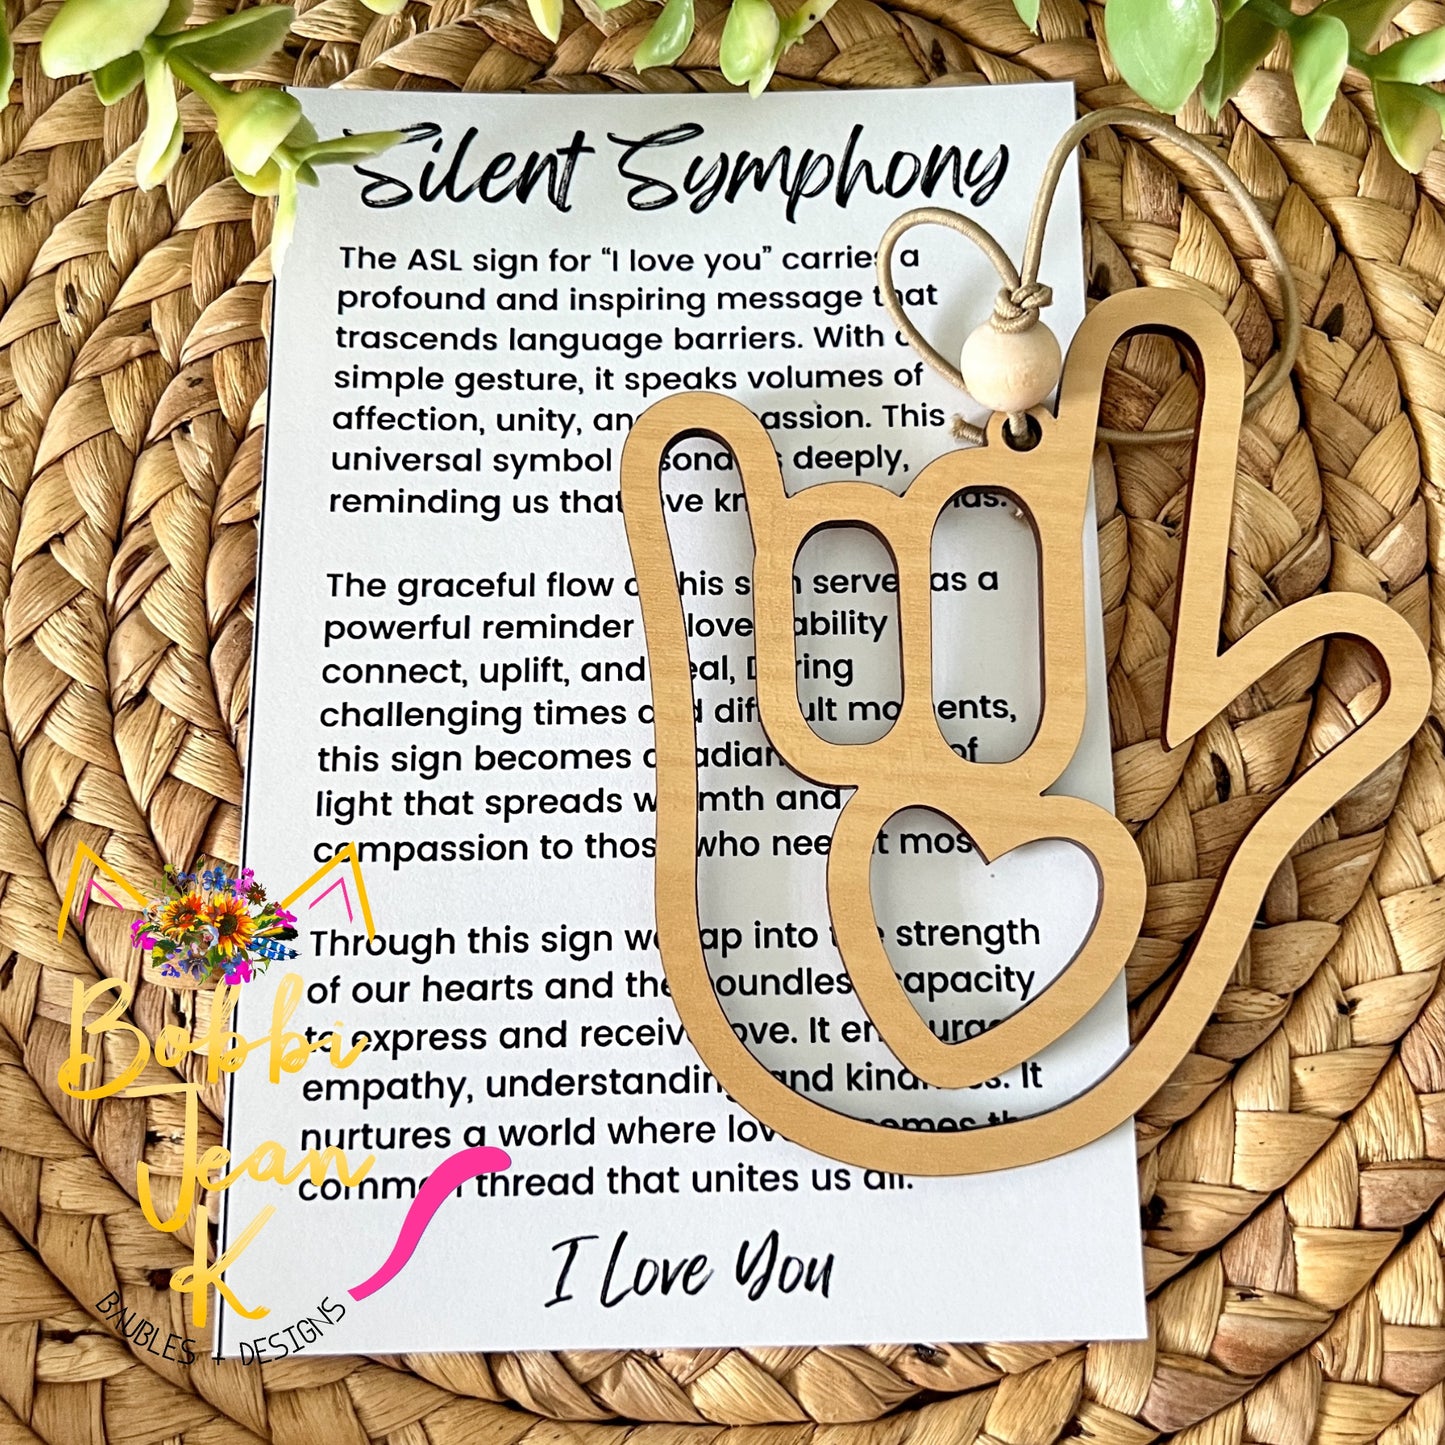 Silent Symphony
The ASL sign for “I love you” carries a
profound and inspiring message that
trascends language barriers. With a
simple gesture, it speaks volumes of
affection, unity, and compassion. This
universal symbol resonates deeply,
reminding us that love knows
The graceful flow of this sign serves as a
powerful reminder love ability
connect, uplift, and heal, During
challenging times and difficult moments,
this sign becomes a radiant of
light that spreads warmth and
compassion to those who need it most
Through this sign we tap into the strength
of our hearts and the boundless capacity
to express and receive love. It encourages
empathy, understanding and kindness. It
nurtures a world where love becomes the
common thread that unites us all.
I Love You
Bobbi
Jean
K
BAUBLES + DESIGNS